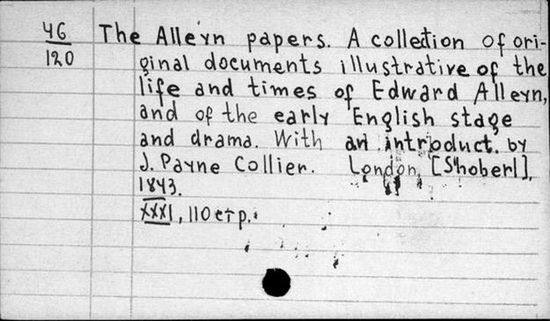 46
120
The Alleyn papers. A collection of ori-
ginal documents illustrative of the
life and times of Edward Alleyn,
and of the early English stage
and drama. With an introduct. by
J. Payne Collier. London, [Shoberl],
1843.
XXXI, 110 стр.